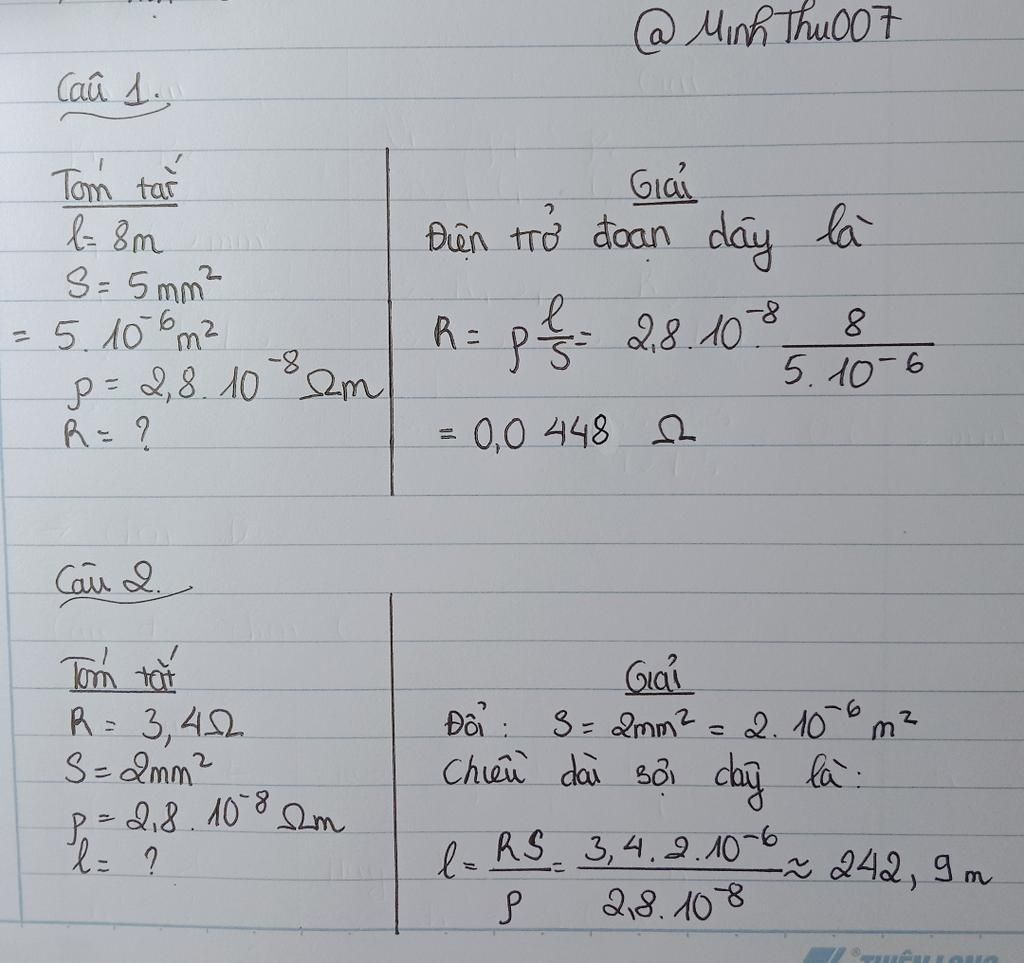 @MinhThu007
Câu 1.
Tóm tắt
l = 8m
S = 5mm²
= 5.10⁻⁶m²
ρ = 2,8.10⁻⁸ Ωm
R = ?
Giải
Điện trở đoạn dây là
R = ρ l/S = 2,8.10⁻⁸. 8/(5.10⁻⁶)
= 0,0448 Ω
Câu 2.
Tóm tắt
R = 3,4Ω
S = 2mm²
ρ = 2,8.10⁻⁸ Ωm
l = ?
Giải
Đổi: S = 2mm² = 2.10⁻⁶ m²
Chiều dài sợi dây là:
l = RS/ρ = (3,4.2.10⁻⁶)/(2,8.10⁻⁸) ≈ 242,9m
®THIÊN LONG